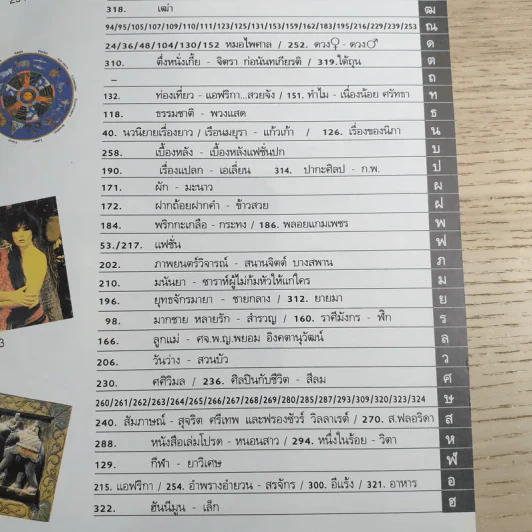 318. เฒ่า ฒ
94/95/105/107/109/110/111/123/125/131/153/159/162/183/195/216/229/239/253 ณ
24/36/48/104/130/152 หมอไพศาล / 252. ดวง♀ - ดวง♂ ด
310. ตึ่งหนั่งเกี้ย - จิตรา ก่อนันทเกียรติ / 319.ใต้ถุน ต
– ถ
132. ท่องเที่ยว - แอฟริกา...สวยจัง / 151. ทำไม - เนื่องน้อย ศรัทธา ท
118. ธรรมชาติ - พวงแสด ธ
40. นวนิยายเรื่องยาว / เรือนมยุรา - แก้วเก้า / 126. เรื่องของนิภา น
258. เบื้องหลัง - เบื้องหลังแฟชั่นปก บ
190. เรื่องแปลก - เอเลี่ยน 314. ปากะศิลป - ก.พ. ป
171. ผัก - มะนาว ผ
172. ฝากถ้อยฝากคำ - ข้าวสวย ฝ
184. พริกกะเกลือ - กระทง / 186. พลอยแกมเพชร พ
53./217. แฟชั่น ฟ
202. ภาพยนตร์วิจารณ์ - สนานจิตต์ บางสพาน ภ
210. มนันยา - ซาราห์ผู้ไม่ก้มหัวให้แก่ใคร ม
196. ยุทธจักรมายา - ชายกลาง / 312. ยายมา ย
98. มากชาย หลายรัก - สำรวญ / 160. ราศีมังกร - พัก ร
166. ลูกแม่ - ศจ.พ.ญ.พยอม อิงคตานุวัฒน์ ล
206. วันว่าง - สวนบัว ว
230. ศศิวิมล / 236. ศิลปินกับชีวิต - สีลม ศ
260/261/262/263/264/265/266/267/268/269/280/285/287/293/309/320/323/324 ษ
240. สัมภาษณ์ - สุจริต ศรีเทพ และฟรองซัวร์ วิลลาเรต์ / 270. ส.ฟลอริดา ส
288. หนังสือเล่มโปรด - หนอนสาว / 294. หนึ่งในร้อย - วิตา ห
129. กีฬา - ยาวิเศษ ฬ
215. แอฟริกา / 254. อำพรางอำยวน - สรจักร / 300. อีแร้ง / 321. อาหาร อ
322. ฮันนีมูน - เล็ก ฮ